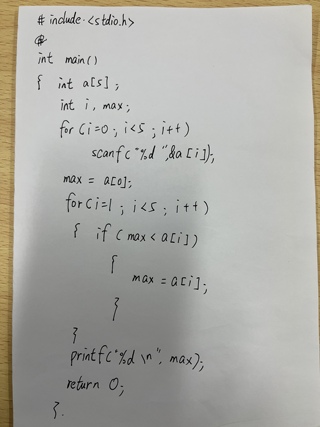 # include <stdio.h>
#
int main()
{ int a[5];
int i, max;
for (i=0; i<5; i++)
scanf("%d",&a[i]);
max = a[0];
for(i=1; i<5; i++)
{ if (max < a[i])
{
max = a[i];
}
}
printf("%d \n", max);
return 0;
}.